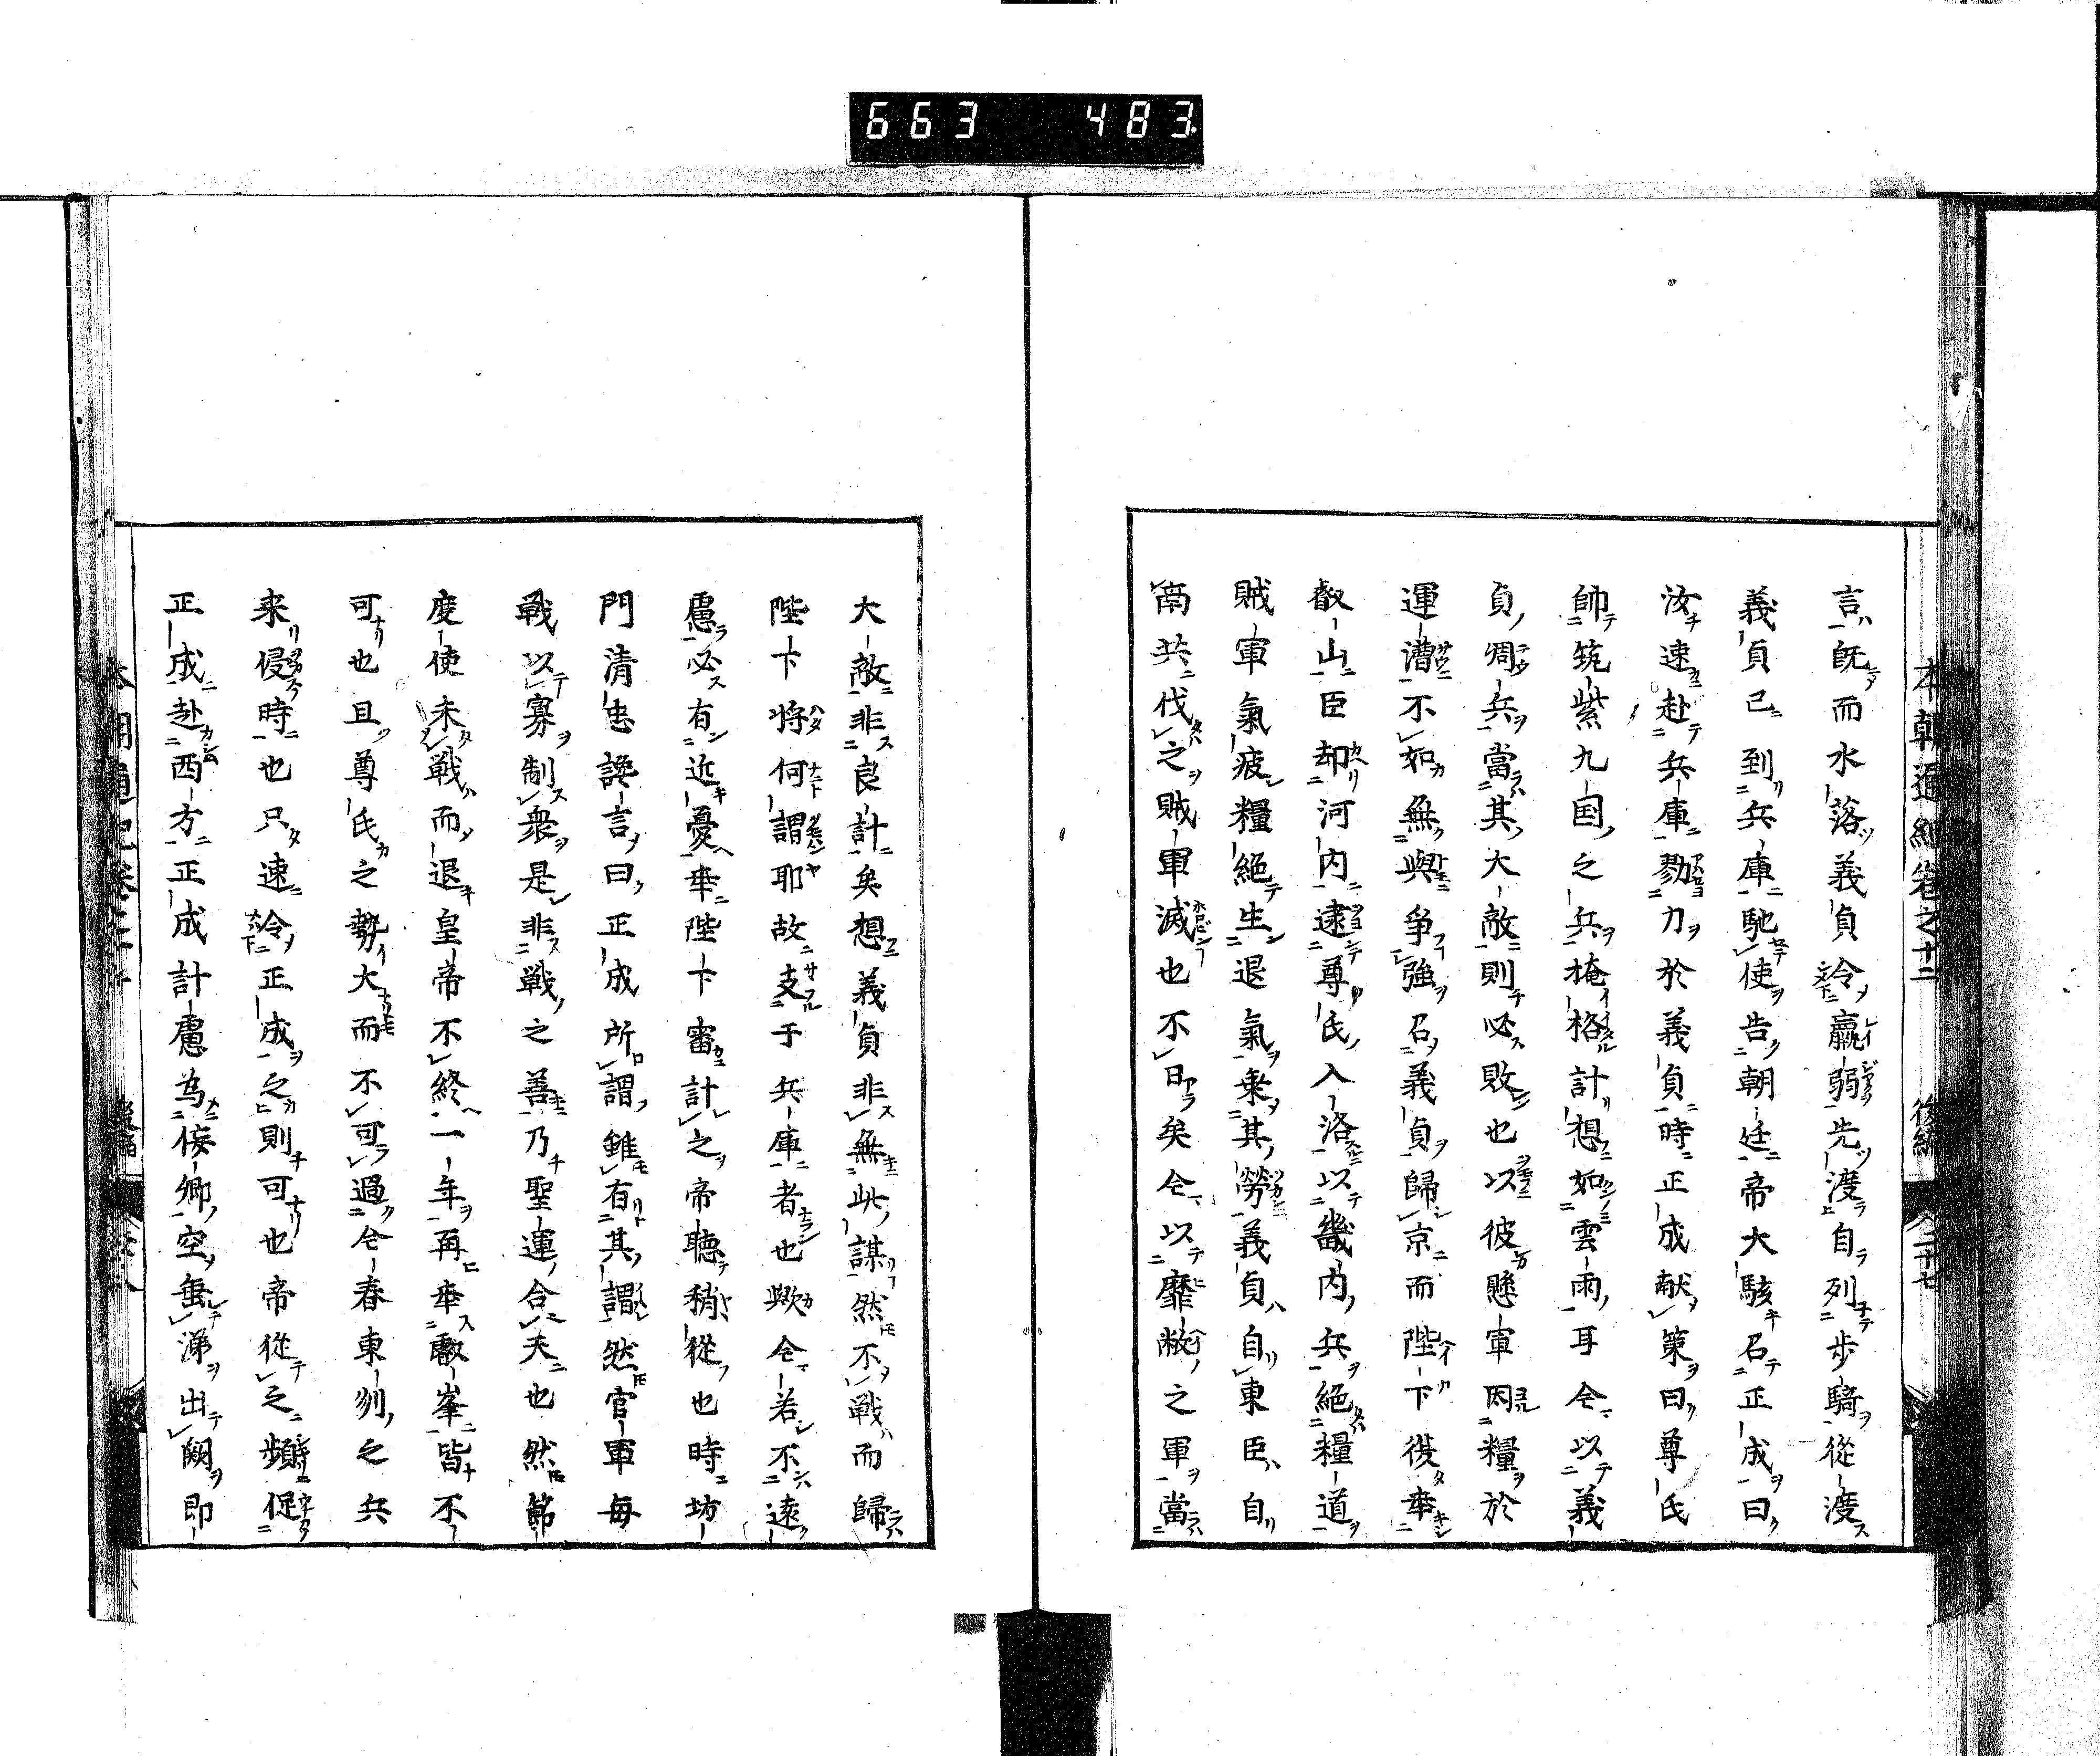 663 483
本朝通紀卷之十二 後編 二十七
言既而水落義貞令羸弱先渡自列步騎從渡
義貞已到兵庫馳使告朝廷帝大駭召正成曰
汝速赴兵庫勠力於義貞時正成献策曰尊氏
帥筑紫九国之兵掩格計想如雲雨耳今以義
貞凋兵當其大敵則必敗也以彼懸軍因糧於
運漕不如無與爭強召義貞歸京而陛下復幸
叡山臣却河内逮尊氏入洛以畿内兵絕糧道
賊軍氣疲糧絕生退氣乗其勞義貞自東臣自
南共伐之賊軍滅也不日矣今以靡敝之軍當
大敵非良計矣想義貞非無此謀然不戰而歸
陛下將何謂耶故支于兵庫者也歟今若不遠
慮必有近憂幸陛下審計之帝聽稍從也時坊
門清忠讒言曰正成所謂雖有其謂然官軍每
戰以寡制衆是非戰之善乃聖運合天也然節
度使未戰而退皇帝不終一年再幸叡峯皆不
可也且尊氏之勢大而不可過今春東列之兵
来侵時也只速令正成之則可也帝從之頻促
正成赴西方正成計慮為侫卿空垂涕出闕即